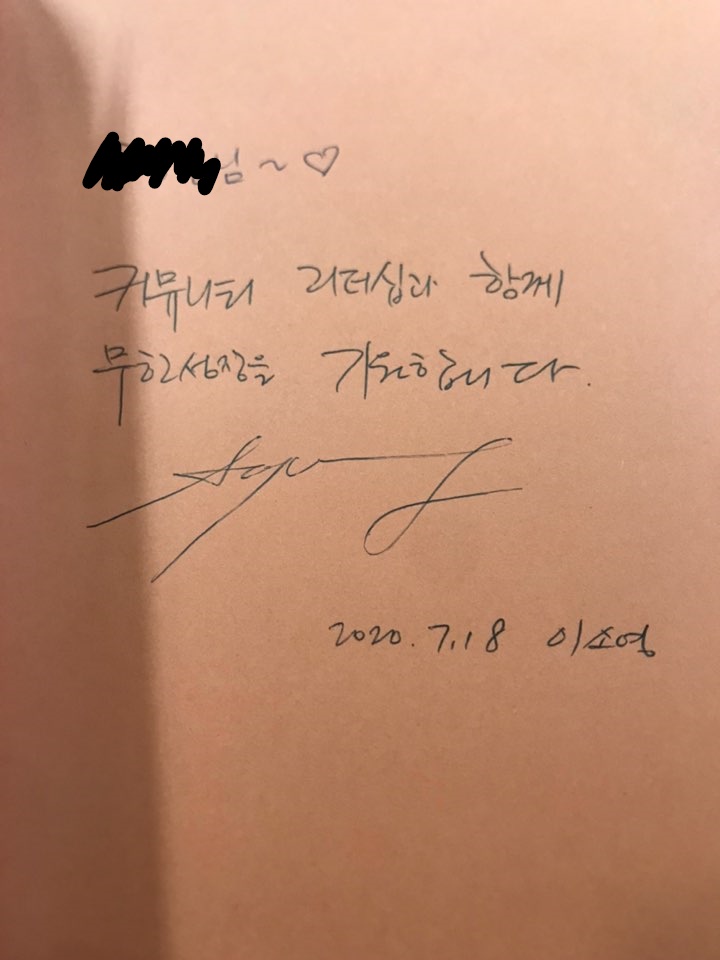 님 ~ ♡
커뮤니티 리더십과 함께
무한성장을 기원합니다.
2020.7.18 이소영